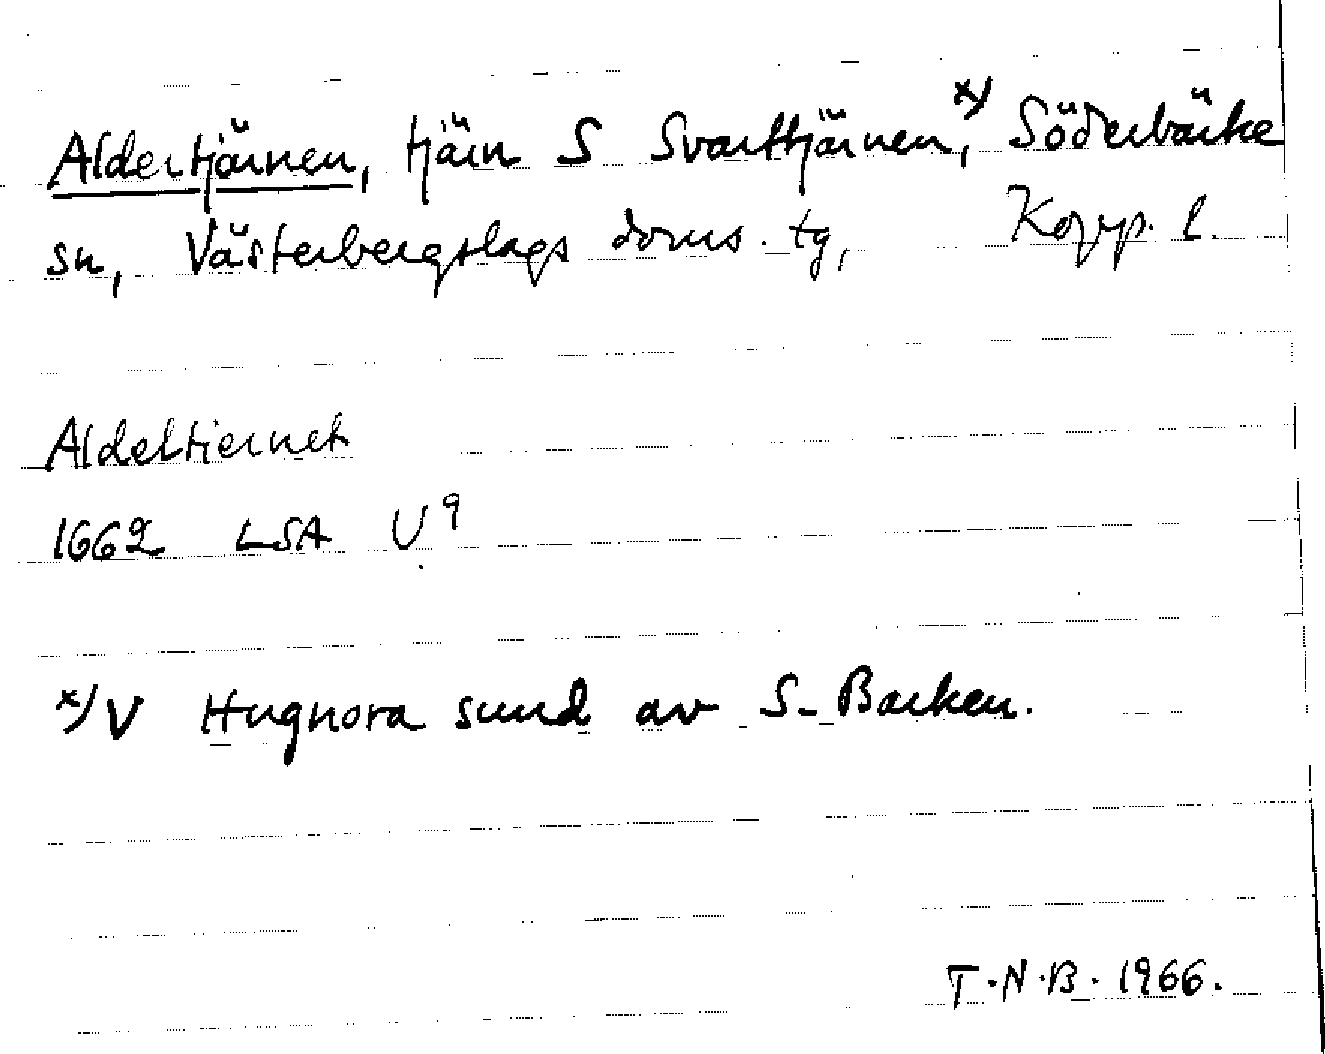 Aldertjärnen, tjärn S Svarttjärnen,x) Söderbärke
sn, Västerbergslags doms. tg, Kopp. l.
Aldeltiernet
1662 LSA U9
x) V Hugnora sund av S. Barken.
T.N.B. 1966.